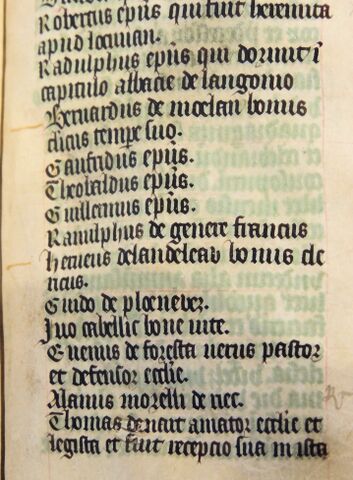 Robertus epūs qui fuit heremita
apud locuuan.
Radulphus epūs qui dormit ī
capitulo abbacie de langonio
Bernardus de moelan bonus
clicus tempe suo.
Gaufridus epūs.
Theobaldus epūs.
Guillermus epūs.
Ranulphus de genere francus
herueus de landeleau bonus cle
ricus.
Guido de ploeneuez.
Juo cabellic bone uite.
Euenus de foresta uerus pastor
et defensor ecclie.
Alanus morelli de riec.
Thomas denant amator ecclie et
legista et fuit recepcio sua in ista